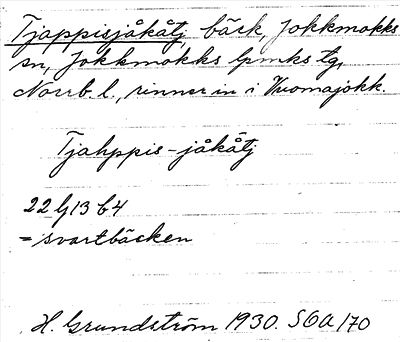 Tjappisjåkåtj bäck, Jokkmokks
sn, Jokkmokks lpmks tg,
Norrb. l., rinner in i Vuomajokk.
Tjahppis-jåkåtj
22 lj 13 b 4
= svartbäcken
H. Grundström 1930. SOA 170